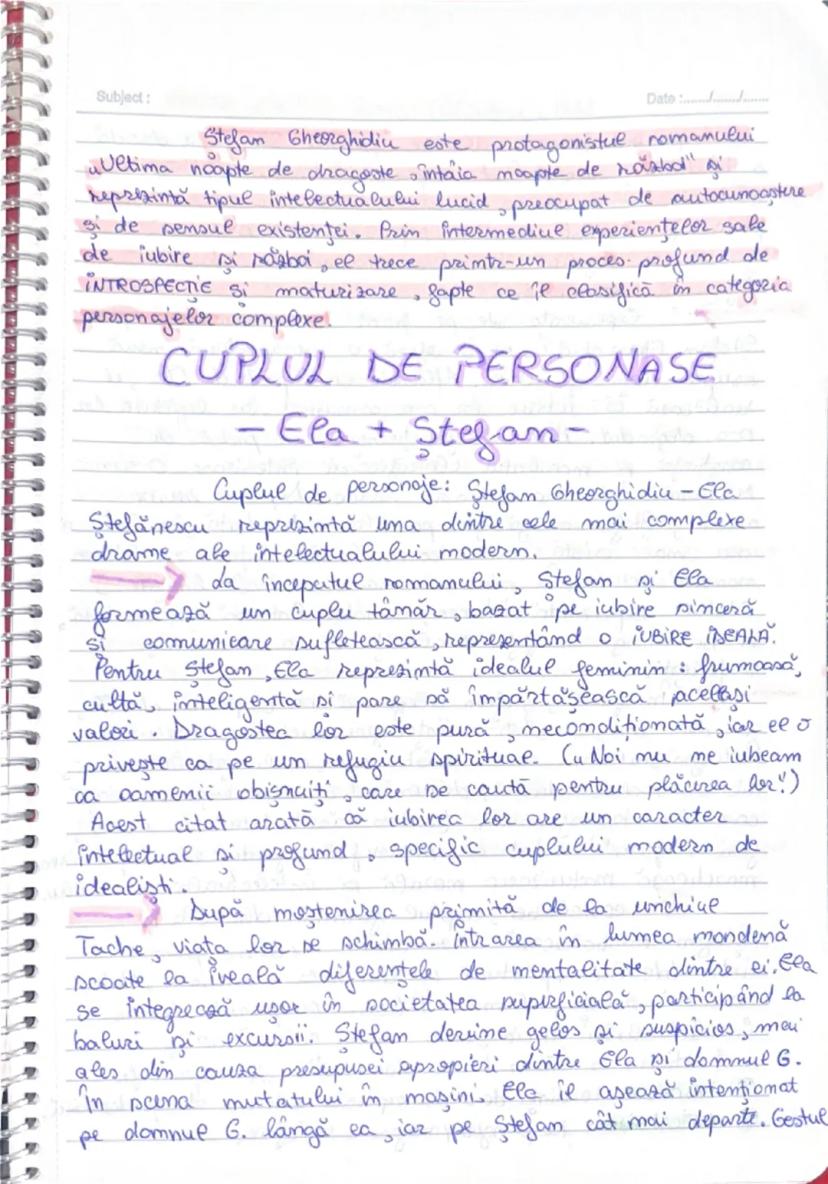 Subject :
Date :....../....../......
Ștefan Gheorghidiu este protagonistul romanului
„Ultima noapte de dragoste, întâia noapte de război” și
reprezintă tipul intelectualului lucid, preocupat de autocunoaștere
și de sensul existenței. Prin intermediul experiențelor sale
de iubire și război, el trece printr-un proces profund de
INTROSPECȚIE și maturizare, fapte ce îl clasifică în categoria
personajelor complexe.
CUPLUL DE PERSONASE
- Ela + Ștefan -
Cuplul de personaje: Ștefan Gheorghidiu - Ela
Ștefănescu reprizintă una dintre cele mai complexe
drame ale intelectualului modern.
La începutul romanului, Ștefan și Ela
formează un cuplu tânăr, bazat pe iubire sinceră
și comunicare sufletească, reprezentând o IUBIRE IDEALĂ.
Pentru Ștefan, Ela reprezintă idealul feminin: frumoasă,
cultă, inteligentă și pare să împărtășească aceleași
valori. Dragostea lor este pură, necondiționată, iar el o
privește ca pe un refugiu spiritual. („Noi nu ne iubeam
ca oamenii obișnuiți, care se caută pentru plăcerea lor!”)
Acest citat arată că iubirea lor are un caracter
intelectual și profund, specific cuplului modern de
idealiști.
După moștenirea primită de la unchiul
Tache, viața lor se schimbă. Intrarea în lumea mondenă
scoate la iveală diferențele de mentalitate dintre ei. Ela
se integrează ușor în societatea superficială, participând la
baluri și excursii. Ștefan devine gelos și suspicios, mai
ales din cauza presupusei apropieri dintre Ela și domnul G.
În scena mutatului în mașini, Ela îl așează intenționat
pe domnul G. lângă ea, iar pe Ștefan cât mai departe. Gestul